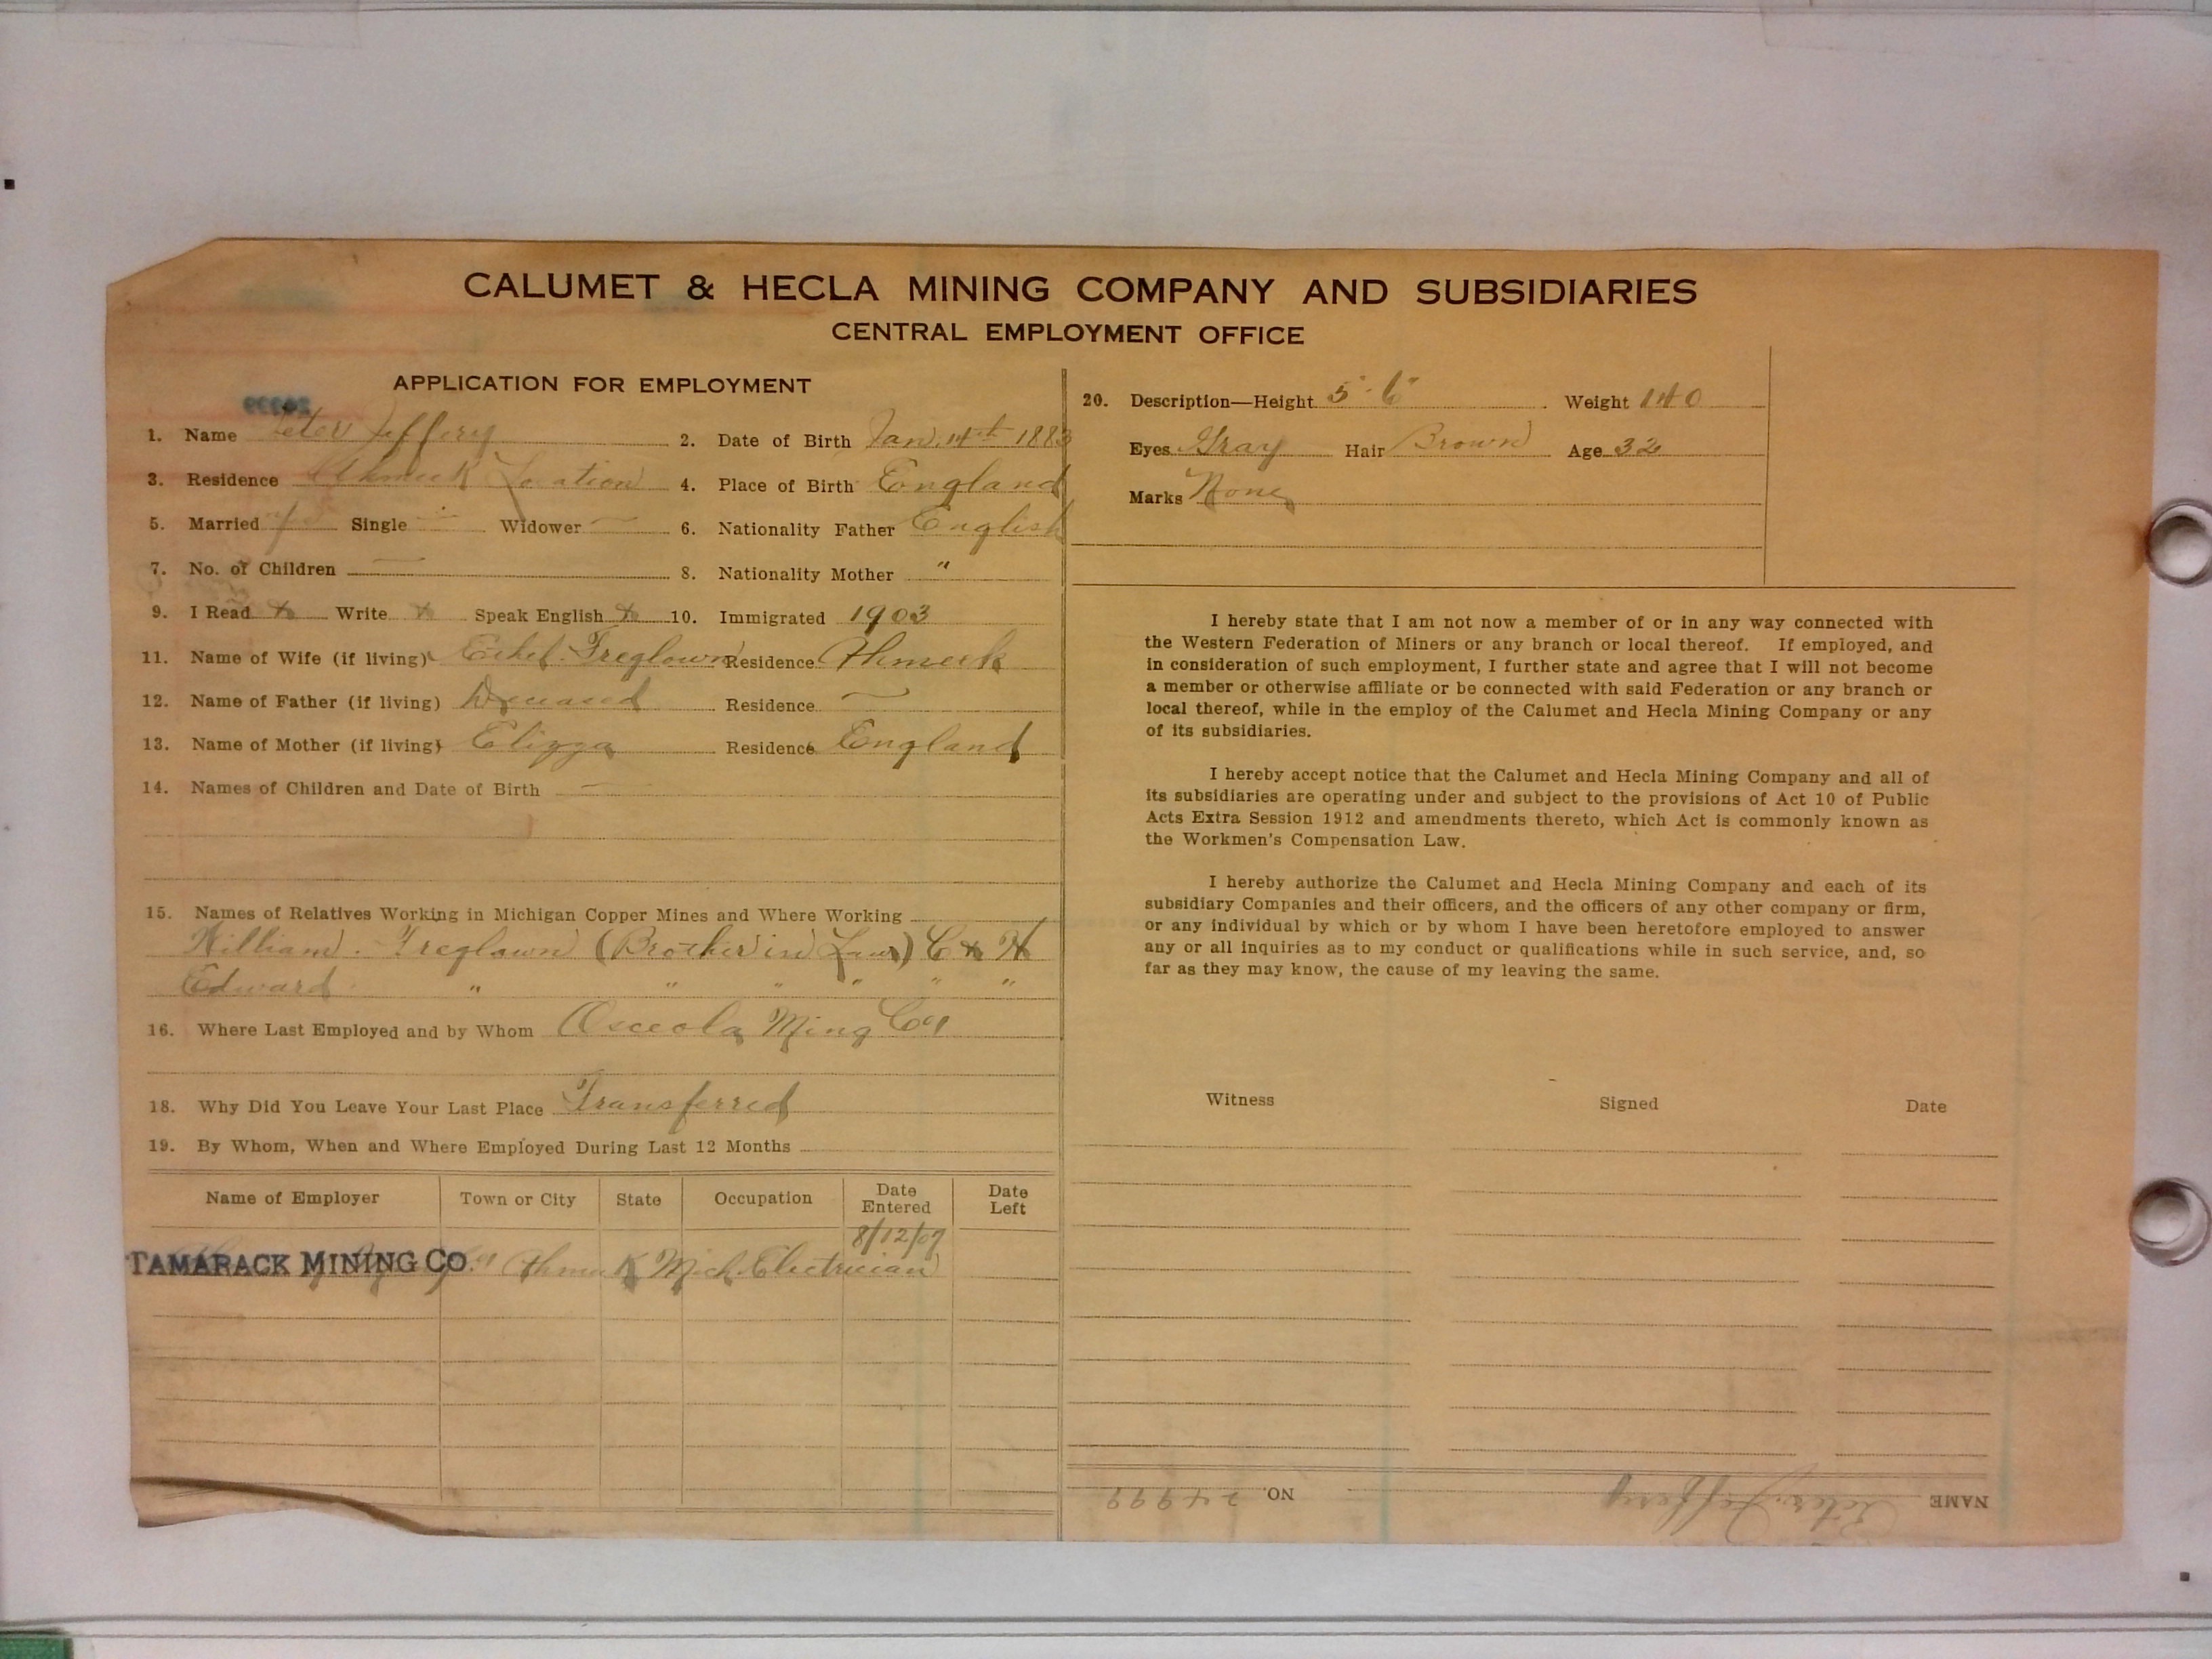 CALUMET & HECLA MINING COMPANY AND SUBSIDIARIES
CENTRAL EMPLOYMENT OFFICE
APPLICATION FOR EMPLOYMENT
1. Name Peter Jeffery 2. Date of Birth Jan. 14th 1883
3. Residence Ahmeek Location 4. Place of Birth England
5. Married / Single — Widower — 6. Nationality Father English
7. No. of Children — 8. Nationality Mother "
9. I Read x Write x Speak English x 10. Immigrated 1903
11. Name of Wife (if living) Ethel Treglown Residence Ahmeek
12. Name of Father (if living) Deceased Residence —
13. Name of Mother (if living) Elizza Residence England
14. Names of Children and Date of Birth —
15. Names of Relatives Working in Michigan Copper Mines and Where Working
William. Treglown (Brother in Law) C & H
Edward " " " " " "
16. Where Last Employed and by Whom Osceola Ming Co
18. Why Did You Leave Your Last Place Transferred
19. By Whom, When and Where Employed During Last 12 Months
Name of Employer Town or City State Occupation Date Entered Date Left
8/12/07
TAMARACK MINING CO. Ahmeek Mich. Electrician
20. Description—Height 5' 6" Weight 140
Eyes Gray Hair Brown Age 32
Marks None
I hereby state that I am not now a member of or in any way connected with
the Western Federation of Miners or any branch or local thereof. If employed, and
in consideration of such employment, I further state and agree that I will not become
a member or otherwise affiliate or be connected with said Federation or any branch or
local thereof, while in the employ of the Calumet and Hecla Mining Company or any
of its subsidiaries.
I hereby accept notice that the Calumet and Hecla Mining Company and all of
its subsidiaries are operating under and subject to the provisions of Act 10 of Public
Acts Extra Session 1912 and amendments thereto, which Act is commonly known as
the Workmen's Compensation Law.
I hereby authorize the Calumet and Hecla Mining Company and each of its
subsidiary Companies and their officers, and the officers of any other company or firm,
or any individual by which or by whom I have been heretofore employed to answer
any or all inquiries as to my conduct or qualifications while in such service, and, so
far as they may know, the cause of my leaving the same.
Witness Signed Date
NAME Peter Jeffery NO. 24999